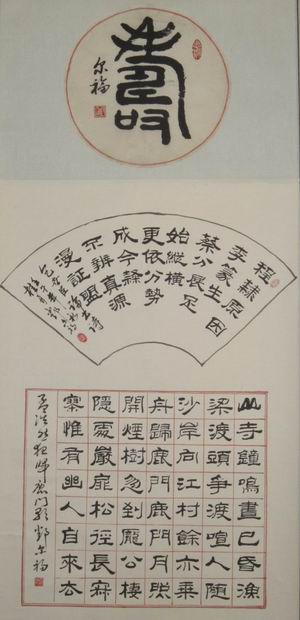 壽
尔福
程隸原因
李篆生
蔡分展足
始縱橫
更依分勢
成今隸
不辨真源
漫証盟
包世臣論書詩
山寺鐘鳴晝已昏漁
梁渡頭爭渡喧人隨
沙岸向江村餘亦乘
舟歸鹿門鹿門月照
開煙樹忽到龐公棲
隱處巖扉松徑長寂
寥惟有幽人自來去
孟浩然夜歸鹿門歌 鄧尔福